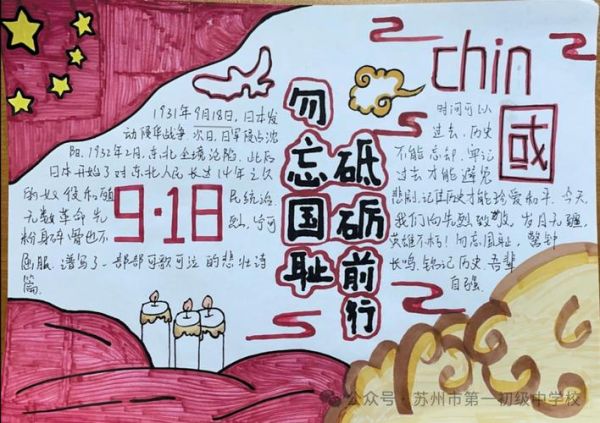 勿忘国耻
砥砺前行
chin
國
1931年9月18日,日本发
动侵华战争 次日,日军侵占沈
阳.1932年2月,东北全境沦陷.此后
日本开始了对东北人民长达14年之久
的奴役和殖 民统治.
无数革命先 烈,宁可
粉身碎骨也不
屈服.谱写了一部部可歌可泣的悲壮诗
篇.
9·18
时间可以
过去,历史
不能忘却.牢记
过去才能避免
悲剧.记住历史才能珍爱和平.今天,
我们向先烈致敬,岁月无疆,
英雄不朽!勿忘国耻,警钟
长鸣,铭记历史.吾辈
自强.
公众号·苏州市第一初级中学校